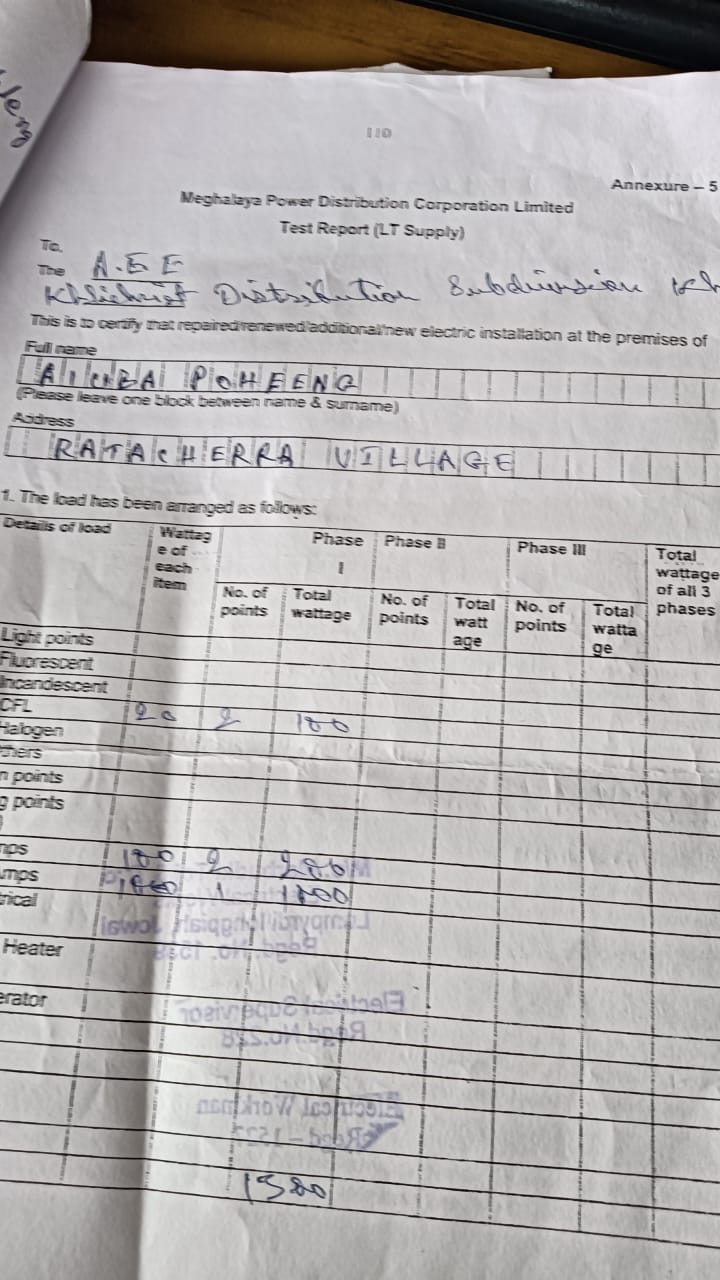 110
Annexure – 5
Meghalaya Power Distribution Corporation Limited
Test Report (LT Supply)
To,
The A.E E
Khliehriat Distribution Subdivision
This is to certify that repaired/renewed/additional/new electric installation at the premises of
Full name
POHEENG
(Please leave one block between name & surname)
Address
RATACHERRA VILLAGE
1. The load has been arranged as follows:
Details of load Wattag e of each item Phase I Phase II Phase III Total wattage of all 3 phases
No. of points Total wattage No. of points Total watt age No. of points Total watta ge
Light points
Fluorescent
Incandescent
CFL 20 2
Halogen
thers
n points
g points
mps 100 2
mps 1
rical
Heater
erator
Electrical Supervisor
Regd.No.228
Electrical Workman